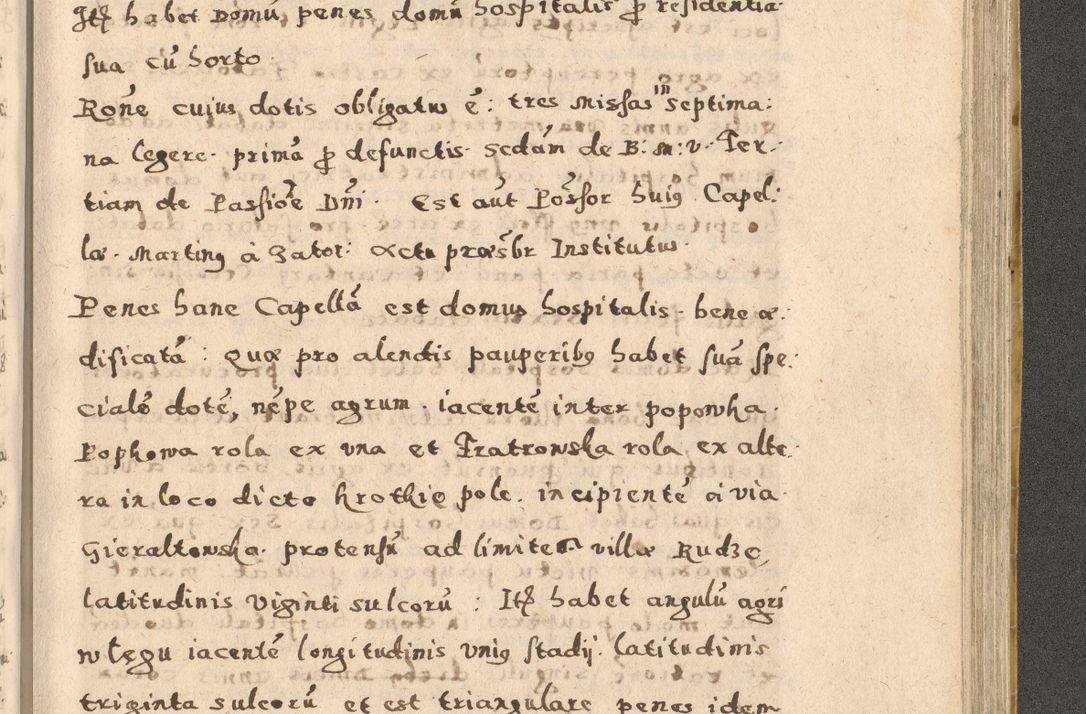 Itē habet Domū penes domū hospitalis ꝑ residentia
sua cū horto
Rōne cuius dotis obligatus ē: tres missas in septima:
na legere. primā ꝑ defunctis. Secdām de B: M: V. Ter.
tiam de Passiōe Dnī. Est aūt Pośsor huiꝯ Capel:
læ. Martinꝯ à Zator: Actu præsbr Institutus.
Penes hanc Capellā est domus hospitalis. bene æ.
dificatā: Quæ pro alendis pauperibꝯ habet suā spe:
cialē dotē, nēpe agrum. iacentē inter popowka.
Popkowa rola ex vna et Fratrowska rola ex alte.
ra in loco dicto krotkie pole. incipientē à via.
Gieraltowska. protensū ad limites villæ Rudze
latitudinis viginti sulcorū: Itē habet angulū agri
w lęgu iacentē longitudinis vniꝯ stadij. latitudinis
triginta sulcorū et est triangulare penes idem